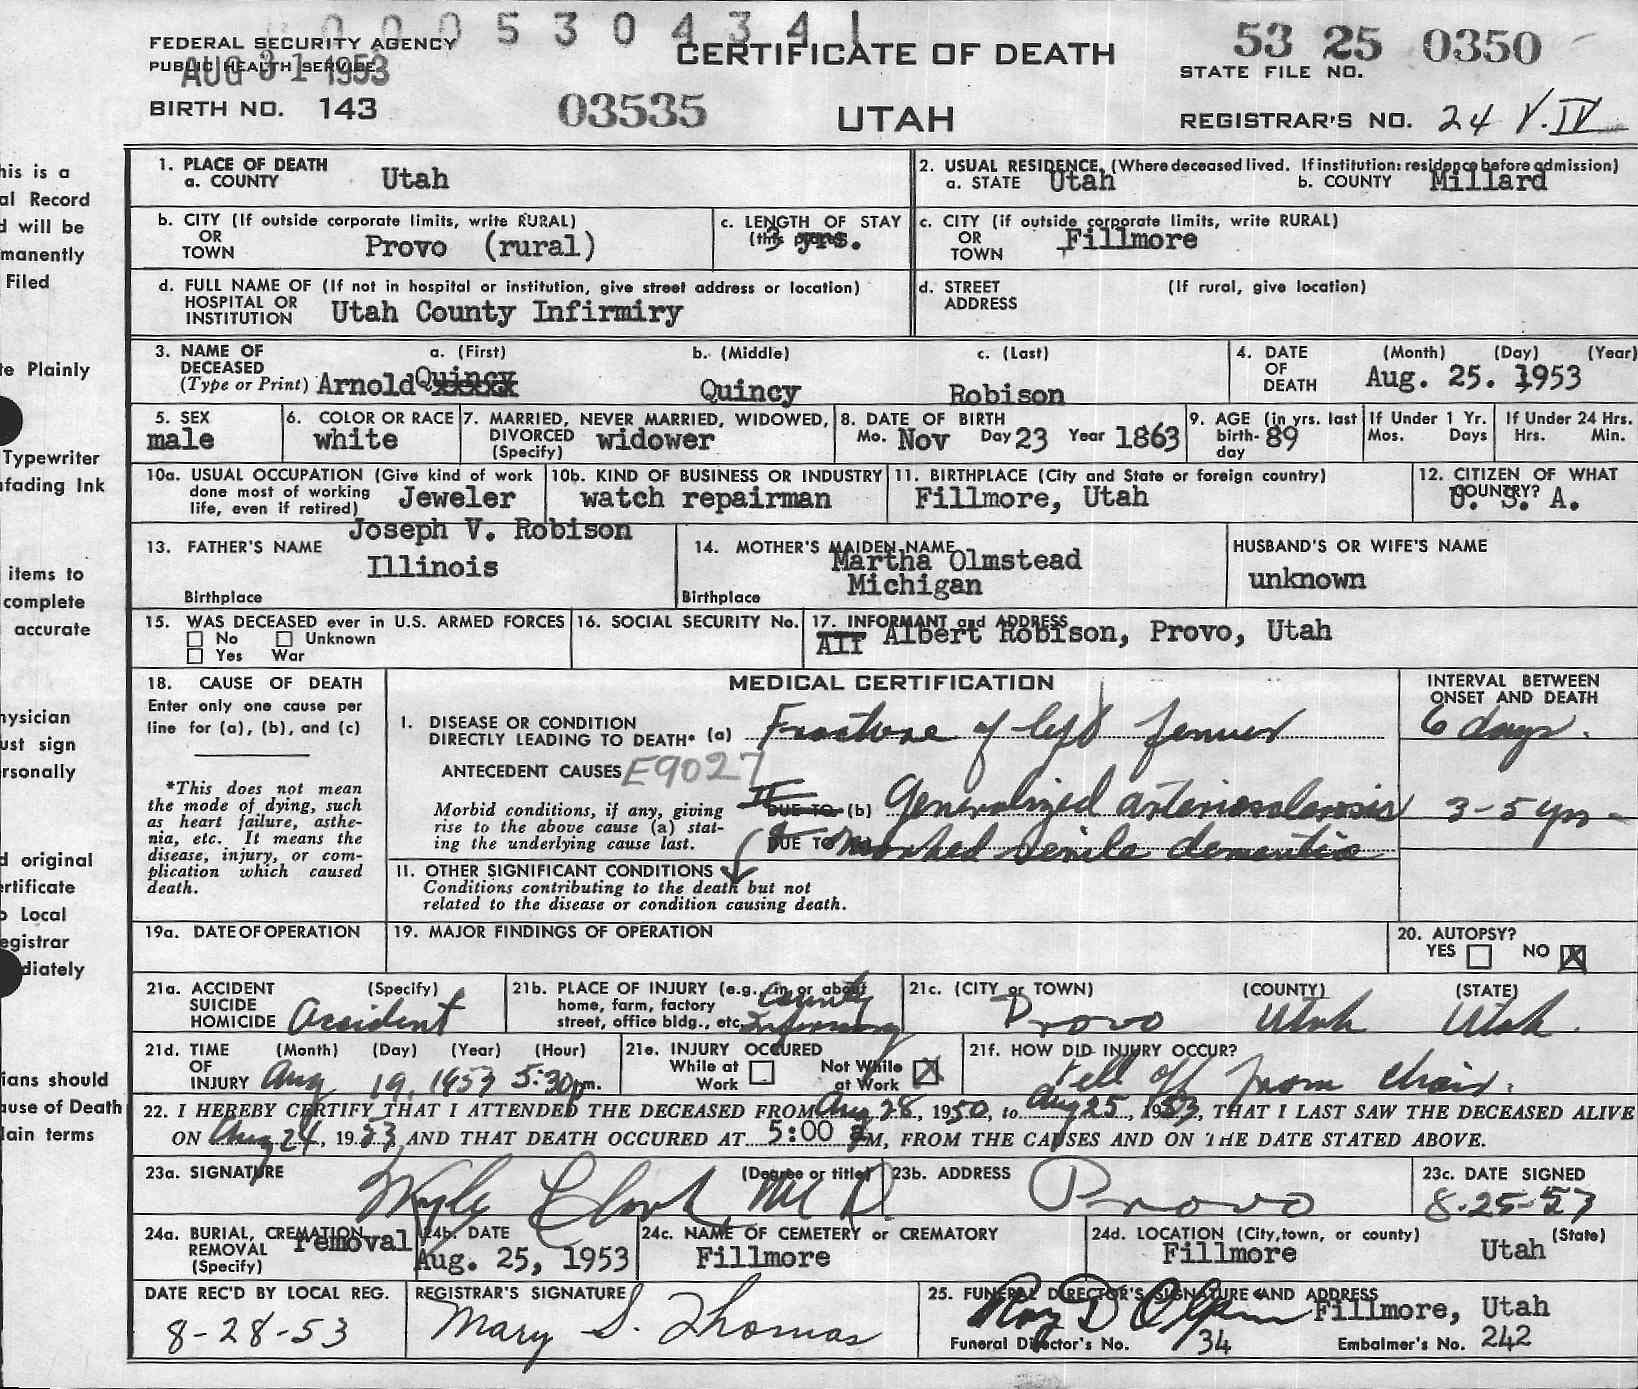 0 0 0 5 3 0 4 3 4 1
FEDERAL SECURITY AGENCY
PUBLIC HEALTH SERVICE
AUG 31 1953
CERTIFICATE OF DEATH
53 25 0350
STATE FILE NO.
BIRTH NO. 143
03535
UTAH
REGISTRAR'S NO. 24 V. IV
his is a
al Record
d will be
manently
Filed
te Plainly
Typewriter
nfading Ink
items to
complete
accurate
hysician
ust sign
rsonally
d original
ertificate
o Local
egistrar
diately
ians should
ause of Death
lain terms
1. PLACE OF DEATH
a. COUNTY Utah
2. USUAL RESIDENCE, (Where deceased lived. If institution: residence before admission)
a. STATE Utah b. COUNTY Millard
b. CITY (If outside corporate limits, write RURAL)
OR
TOWN Provo (rural)
c. LENGTH OF STAY
(this place) 3 yrs.
c. CITY (if outside corporate limits, write RURAL)
OR
TOWN Fillmore
d. FULL NAME OF (If not in hospital or institution, give street address or location)
HOSPITAL OR
INSTITUTION Utah County Infirmiry
d. STREET
ADDRESS (If rural, give location)
3. NAME OF
DECEASED
(Type or Print)
a. (First) b. (Middle) c. (Last)
Arnold Quincy Quincy Robison
4. DATE
OF
DEATH
(Month) (Day) (Year)
Aug. 25. 1953
5. SEX
male
6. COLOR OR RACE
white
7. MARRIED, NEVER MARRIED, WIDOWED,
DIVORCED
(Specify) widower
8. DATE OF BIRTH
Mo. Nov Day 23 Year 1863
9. AGE (in yrs. last
birth-
day 89
If Under 1 Yr.
Mos. Days
If Under 24 Hrs.
Hrs. Min.
10a. USUAL OCCUPATION (Give kind of work
done most of working
life, even if retired) Jeweler
10b. KIND OF BUSINESS OR INDUSTRY
watch repairman
11. BIRTHPLACE (City and State or foreign country)
Fillmore, Utah
12. CITIZEN OF WHAT
COUNTRY?
U. S. A.
13. FATHER'S NAME Joseph V. Robison
Birthplace Illinois
14. MOTHER'S MAIDEN NAME
Martha Olmstead
Birthplace Michigan
HUSBAND'S OR WIFE'S NAME
unknown
15. WAS DECEASED ever in U.S. ARMED FORCES
No Unknown
Yes War
16. SOCIAL SECURITY No.
17. INFORMANT and ADDRESS
Alf Albert Robison, Provo, Utah
18. CAUSE OF DEATH
Enter only one cause per
line for (a), (b), and (c)
*This does not mean
the mode of dying, such
as heart failure, asthe-
nia, etc. It means the
disease, injury, or com-
plication which caused
death.
MEDICAL CERTIFICATION
INTERVAL BETWEEN
ONSET AND DEATH
I. DISEASE OR CONDITION
DIRECTLY LEADING TO DEATH* (a) Fracture of left femur 6 days.
ANTECEDENT CAUSES E9027
Morbid conditions, if any, giving
rise to the above cause (a) stat-
ing the underlying cause last.
II DUE TO (b) Generalized arteriosclerosis 3-5 yrs
DUE TO & marked senile dementia
11. OTHER SIGNIFICANT CONDITIONS
Conditions contributing to the death but not
related to the disease or condition causing death.
19a. DATE OF OPERATION
19. MAJOR FINDINGS OF OPERATION
20. AUTOPSY?
YES NO X
21a. ACCIDENT (Specify)
SUICIDE
HOMICIDE Accident
21b. PLACE OF INJURY (e.g., in or about
home, farm, factory
street, office bldg., etc. County
Infirmary
21c. (CITY or TOWN) (COUNTY) (STATE)
Provo Utah Utah.
21d. TIME (Month) (Day) (Year) (Hour)
OF
INJURY Aug 19, 1953 5:30 pm.
21e. INJURY OCCURED
While at
Work
Not While
at Work X
21f. HOW DID INJURY OCCUR?
Fell off from chair.
22. I HEREBY CERTIFY THAT I ATTENDED THE DECEASED FROM Aug 28, 1950, to Aug 25, 1953, THAT I LAST SAW THE DECEASED ALIVE
ON Aug 24, 1953 AND THAT DEATH OCCURED AT 5:00 PM, FROM THE CAUSES AND ON THE DATE STATED ABOVE.
23a. SIGNATURE (Degree or title)
Clark, M D.
23b. ADDRESS
Provo
23c. DATE SIGNED
8-25-53
24a. BURIAL, CREMATION
REMOVAL
(Specify) removal
24b. DATE
Aug. 25, 1953
24c. NAME OF CEMETERY or CREMATORY
Fillmore
24d. LOCATION (City, town, or county) (State)
Fillmore Utah
DATE REC'D BY LOCAL REG.
8-28-53
REGISTRAR'S SIGNATURE
Mary S. Thomas
25. FUNERAL DIRECTOR'S SIGNATURE AND ADDRESS
Roy D Olpin Fillmore, Utah
Funeral Director's No. 34 Embalmer's No. 242